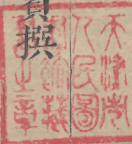 撰
天津市
人民圖
書館藏
書之章